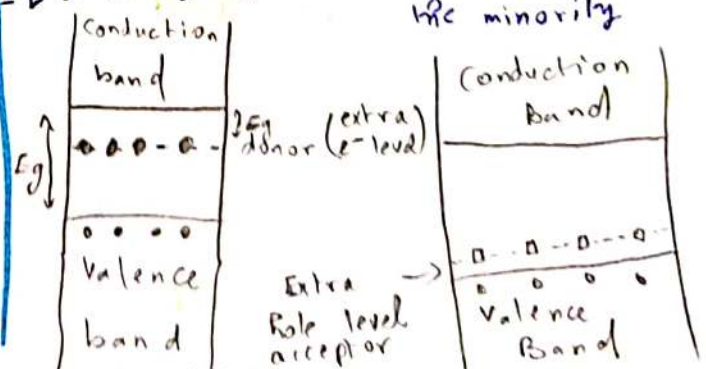 the minority
Conduction
band
Eg
donor (extra
e- level)
Eg
Valence
band
Conduction
Band
Extra
Hole level
acceptor
Valence
Band